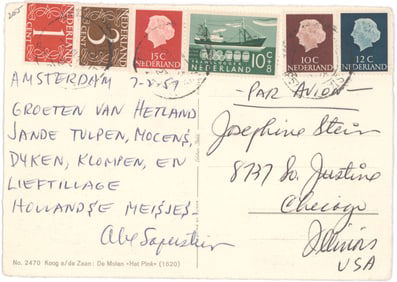 205
1 CENT
NEDERLAND
3
NEDERLAND
15C
NEDERLAND
NEDERLAND
10C
+8
10C
NEDERLAND
12C
NEDERLAND
AMSTERDAM 7-8-57
GROETEN VAN HETLAND
JANDE TULPEN, MOLENS,
DYKEN, KLOMPEN, EN
LIEFTILLAGE
HOLLANDSE MEISJES-
Abe Saperstein
-PAR AVION-
Josephine Stein
8737 So. Justine
Chicago
Illinois
USA
No. 2470 Koog a/de Zaan: De Molen «Het Pink» (1620)